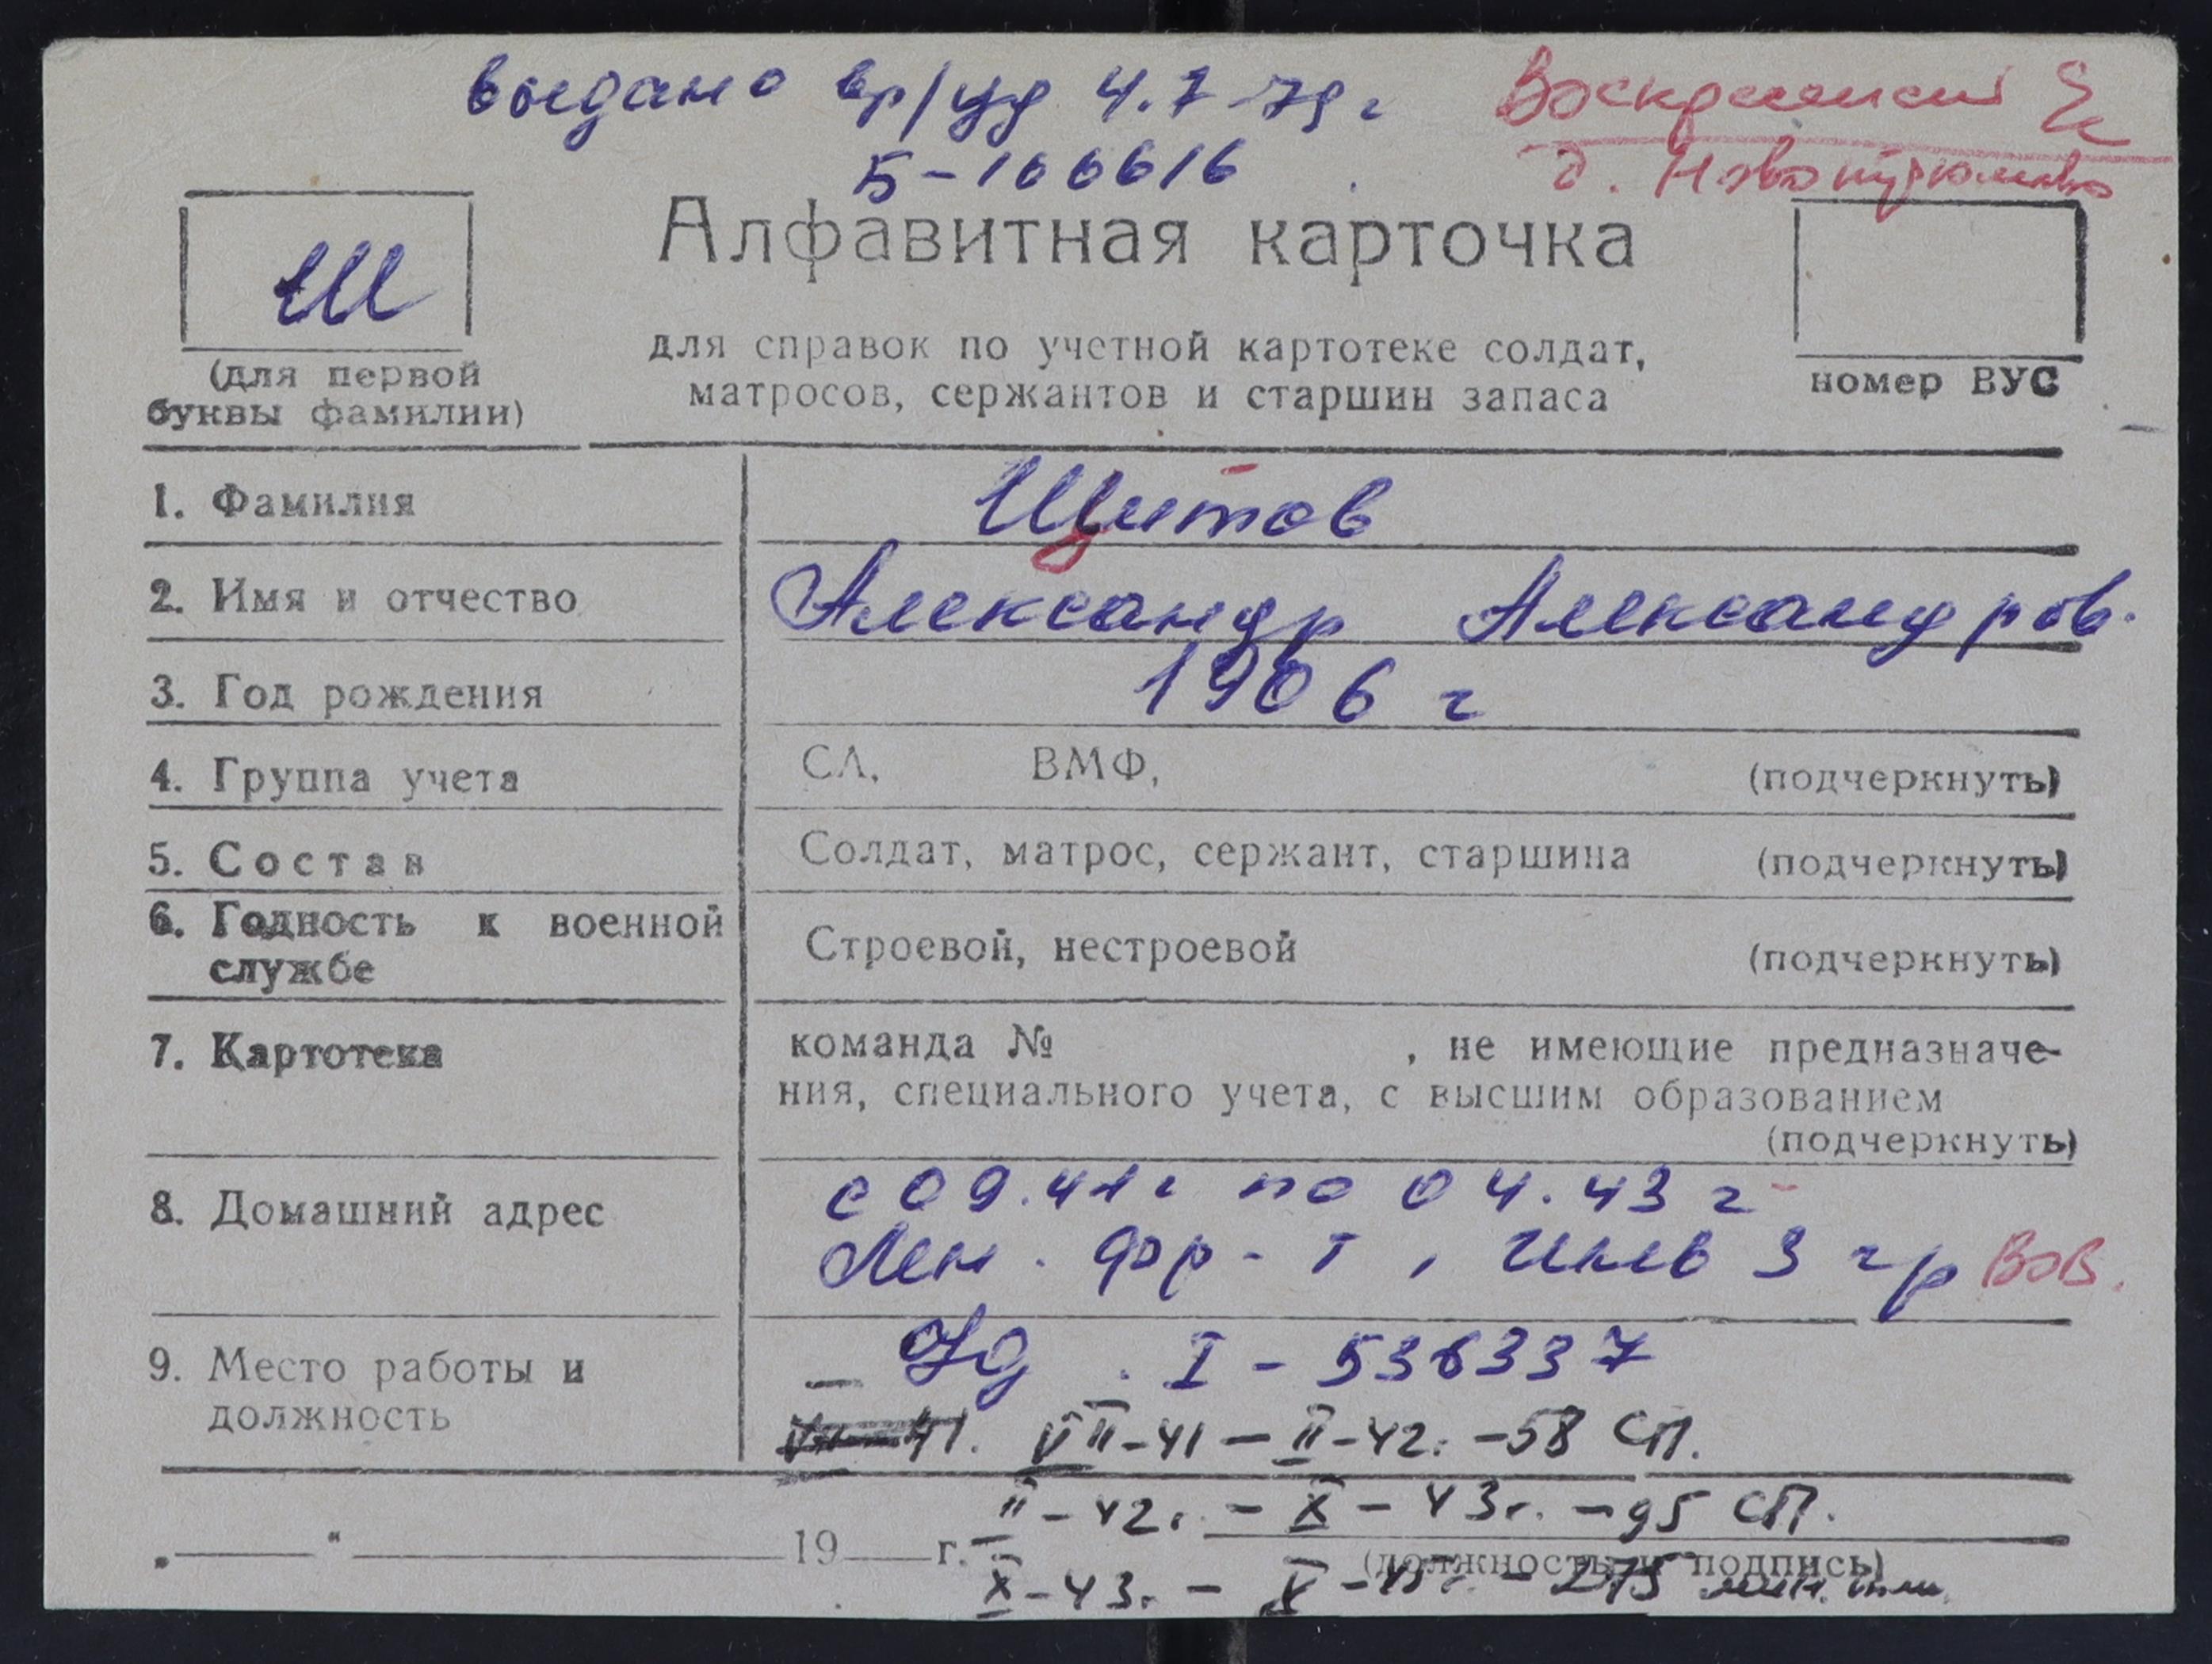 выдано вр/уд 4.7-79 г
Воскресенский
5-166616
д.
Ш
Алфавитная карточка
(для первой
буквы фамилии)
для справок по учетной картотеке солдат,
матросов, сержантов и старшин запаса
номер ВУС
1. Фамилия Щитов
2. Имя и отчество Александр Александров.
3. Год рождения 1906 г
4. Группа учета СА, ВМФ, (подчеркнуть)
5. Состав Солдат, матрос, сержант, старшина (подчеркнуть)
6. Годность к военной
службе Строевой, нестроевой (подчеркнуть)
7. Картотека команда № , не имеющие предназначе-
ния, специального учета, с высшим образованием
(подчеркнуть)
8. Домашний адрес с 09.41г по 04.43 г
Лен. фр-т, инв 3 гр ВОВ.
9. Место работы и
должность
Уд. I - 536337
VII-41 – II-42. – 58 СП.
II-42г. – X – 43г. – 95 СП.
„ “ 19 г.
(должность и подпись)
X-43г. – V-45г. – 275